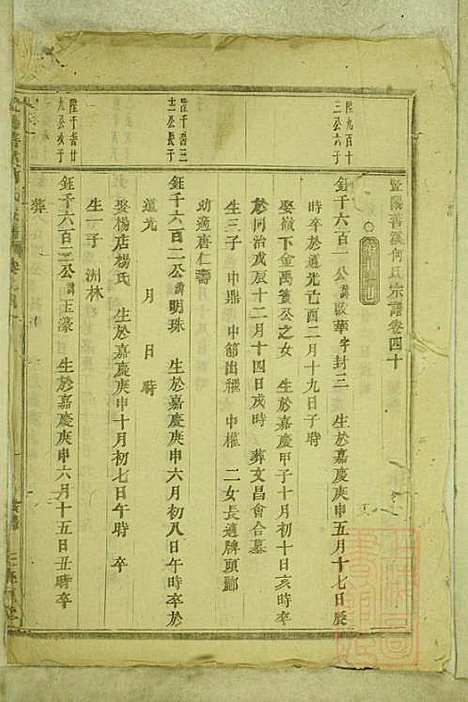 暨陽善溪何氏宗譜卷四十
陞九百十三公六子
鈺千六百一公諱啟華字封三 生於嘉慶庚申五月十七日辰
時卒於道光丁酉二月十九日子時
娶嶺下金禹𥳑公之女 生於嘉慶甲子十月初十日亥時卒
於同治戊辰十二月十四日戌時 葬文昌會合墓
生三子 中鼎 中節出繼 中權 二女長適牌頭酈
幼適唐仁壽
陞千壱三十二公長子
鈺千六百二公諱明珠 生於嘉慶庚申六月初八日午時卒於
道光 月 日 時
娶楊店楊氏 生於嘉慶庚申十月初七日午時 卒
生一子 洲林
陞千壱廿九公次子
鈺千六百二公諱玉濠 生於嘉慶庚申六月十五日丑時卒
葬